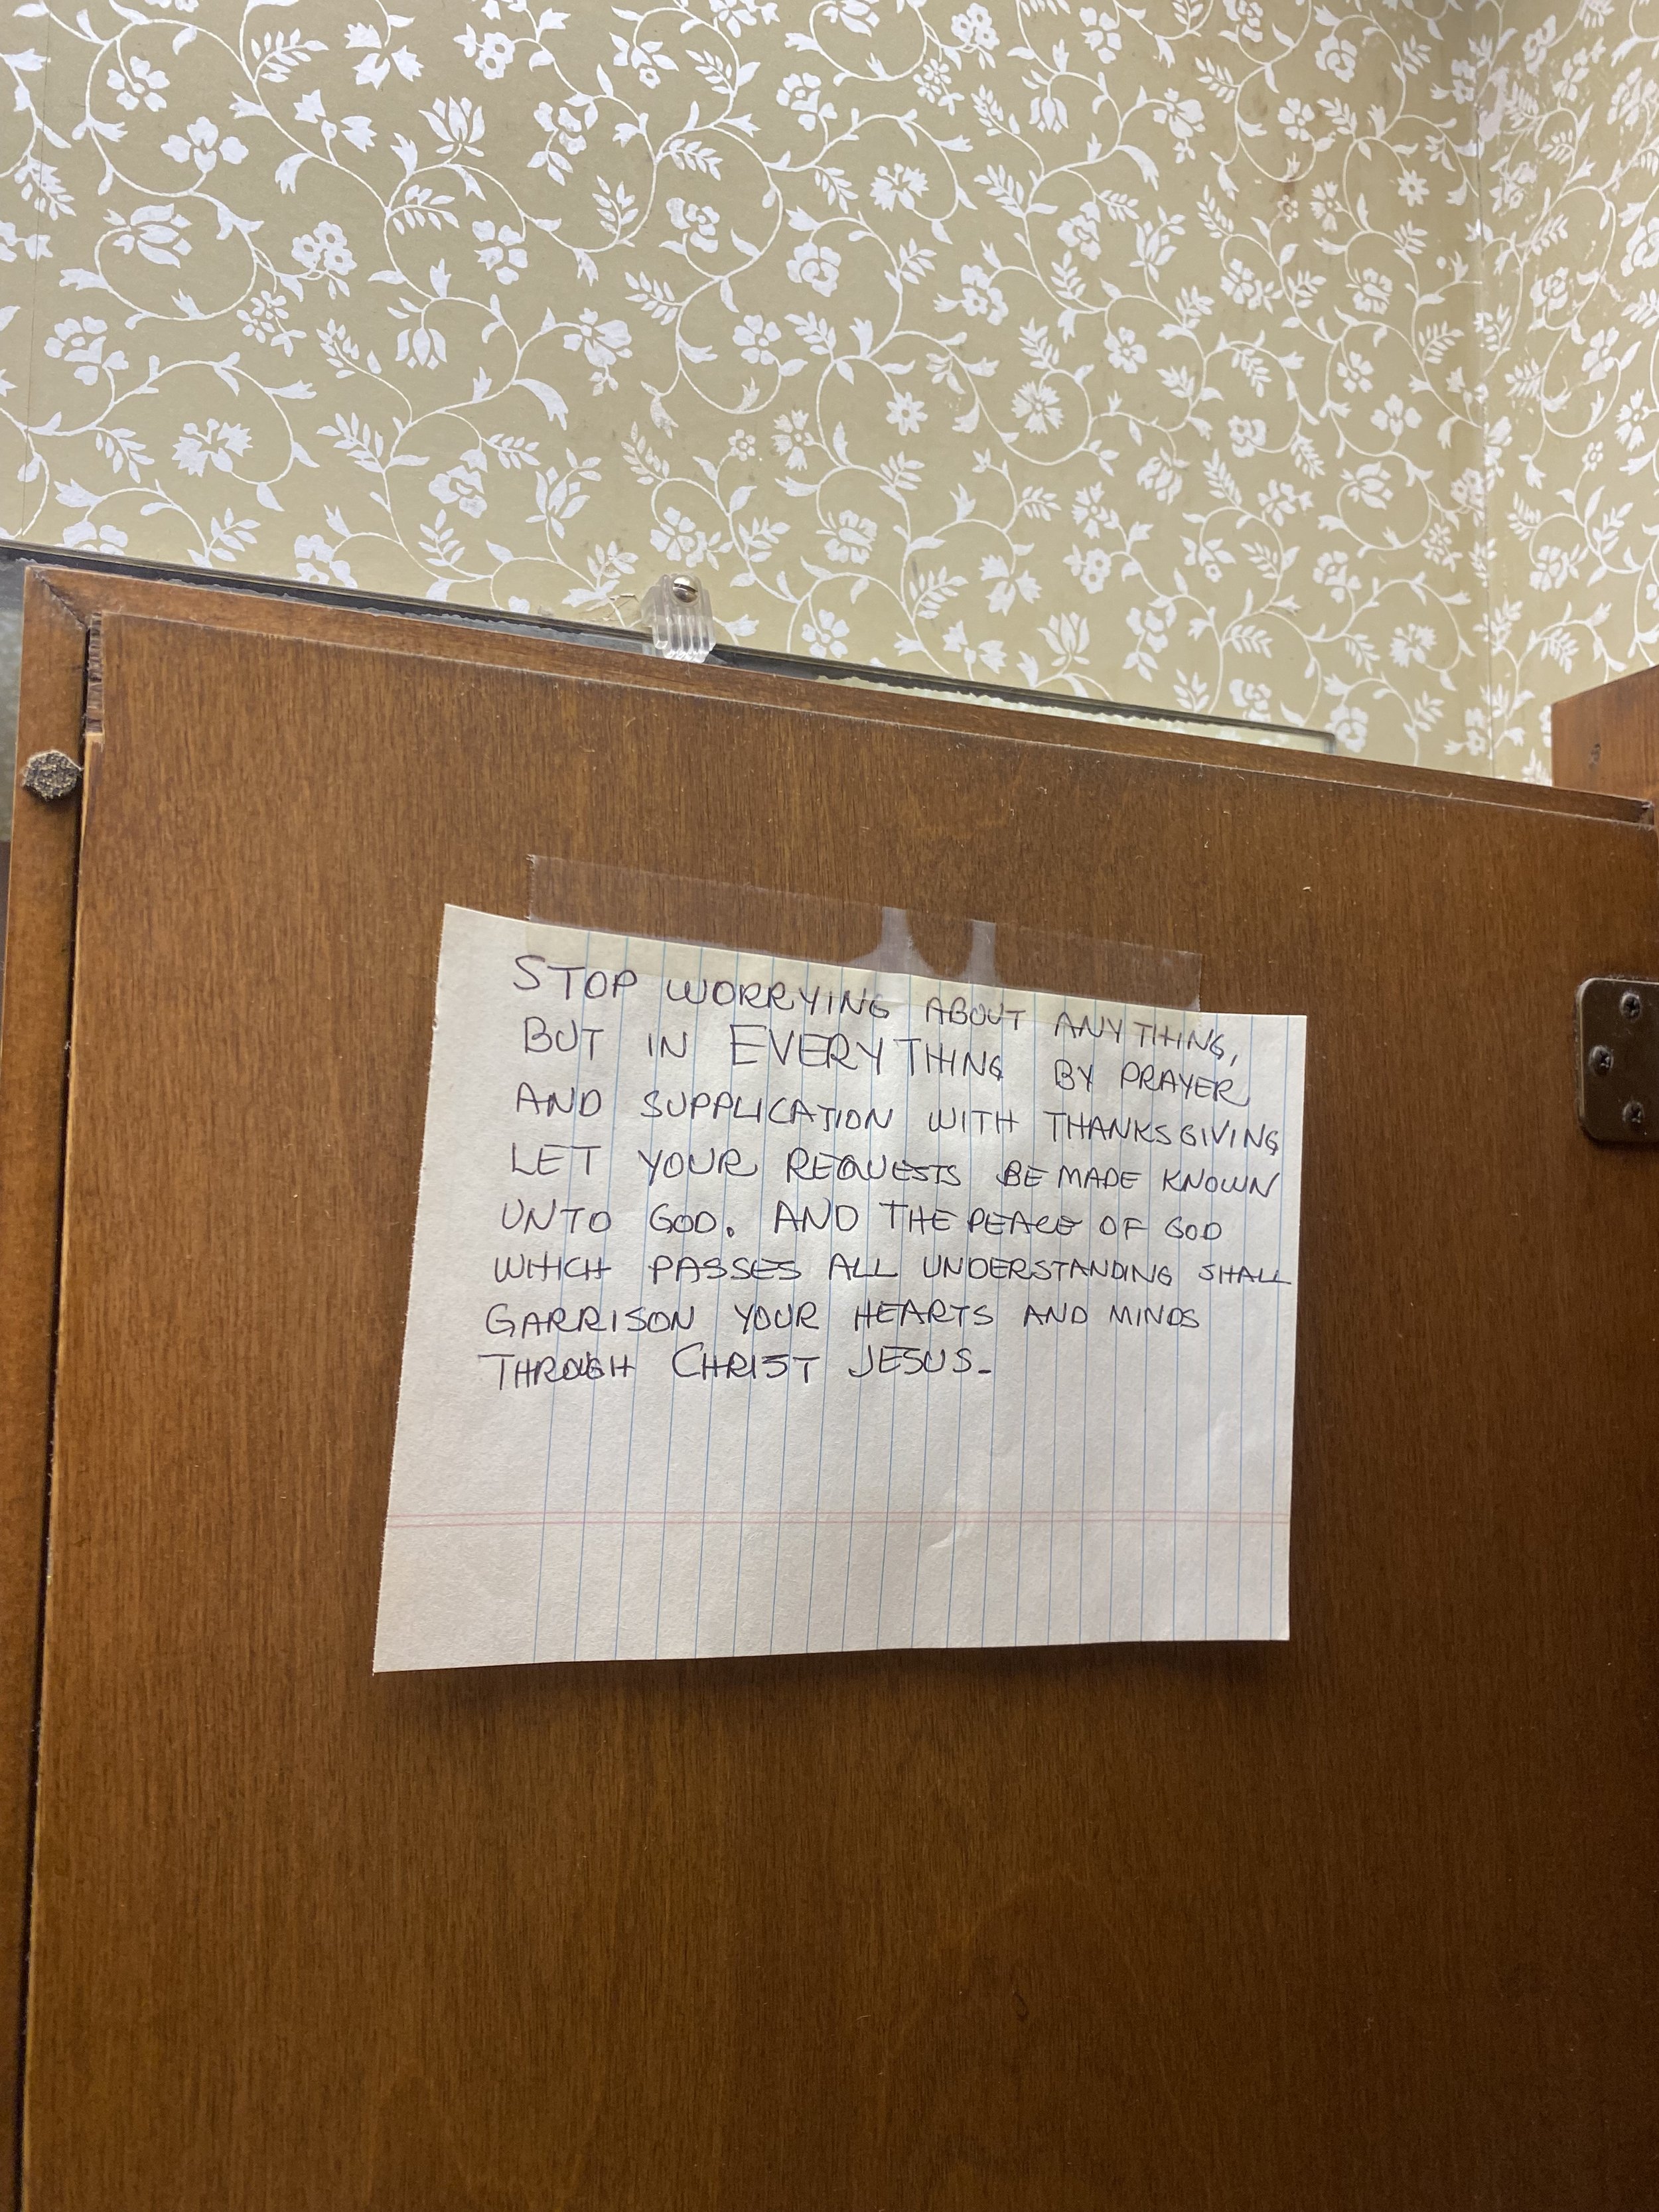 STOP WORRYING ABOUT ANYTHING,
BUT IN EVERYTHING BY PRAYER
AND SUPPLICATION WITH THANKSGIVING
LET YOUR REQUESTS BE MADE KNOWN
UNTO GOD. AND THE PEACE OF GOD
WHICH PASSES ALL UNDERSTANDING SHALL
GARRISON YOUR HEARTS AND MINDS
THROUGH CHRIST JESUS.